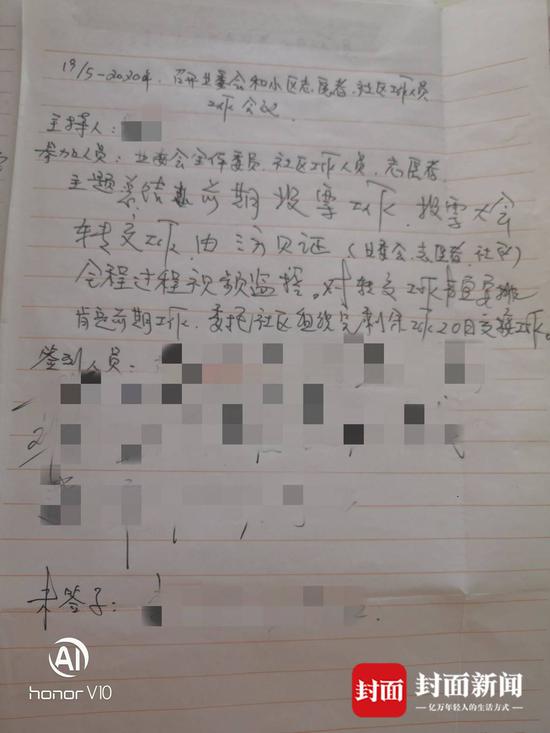 19/5-2020年. 召开业委会和小区志愿者. 社区工作人员
工作会议.
主持人:
参加人员: 业委会全体委员. 社区工作人员. 志愿者.
主题总结 前期投票工作. 投票大会
转交工作. 由三方见证 (业委会. 志愿者 社区)
全程过程视频监控. 对转交工作
肯定前期工作. 委托社区组织完剩余工作20日交接工作.
签到人员:
2
未签字:
AI
honor V10
封面
封面新闻
亿万年轻人的生活方式